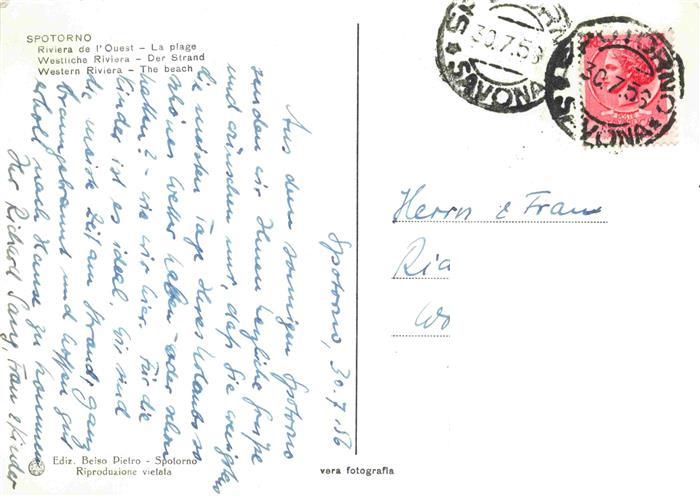 SPOTORNO
Riviera de l'Ouest - La plage
Westliche Riviera - Der Strand
Western Riviera - The beach
Spotorno, 30.7.56
Aus dem sonnigen Spotorno
senden wir Ihnen herzliche Grüße
und wünschen nur, daß Sie wenigstens
die meisten Tage Ihres Urlaubs so
schönes Wetter haben - oder schon
hatten? - wie wir hier. Für die
Kinder ist es ideal. Wir sind
die meiste Zeit am Strand, ganz
braungebrannt und hoffen gut
erholt nach Hause zu kommen
Ihr Richard Sang, Frau & Kinder
Herrn & Frau
Ria
Wo
SPOTORNO
30.7.56
* SAVONA *
SPOTORNO
30.7.56
* SAVONA *
Ediz. Beiso Pietro - Spotorno
Riproduzione vietata
vera fotografia